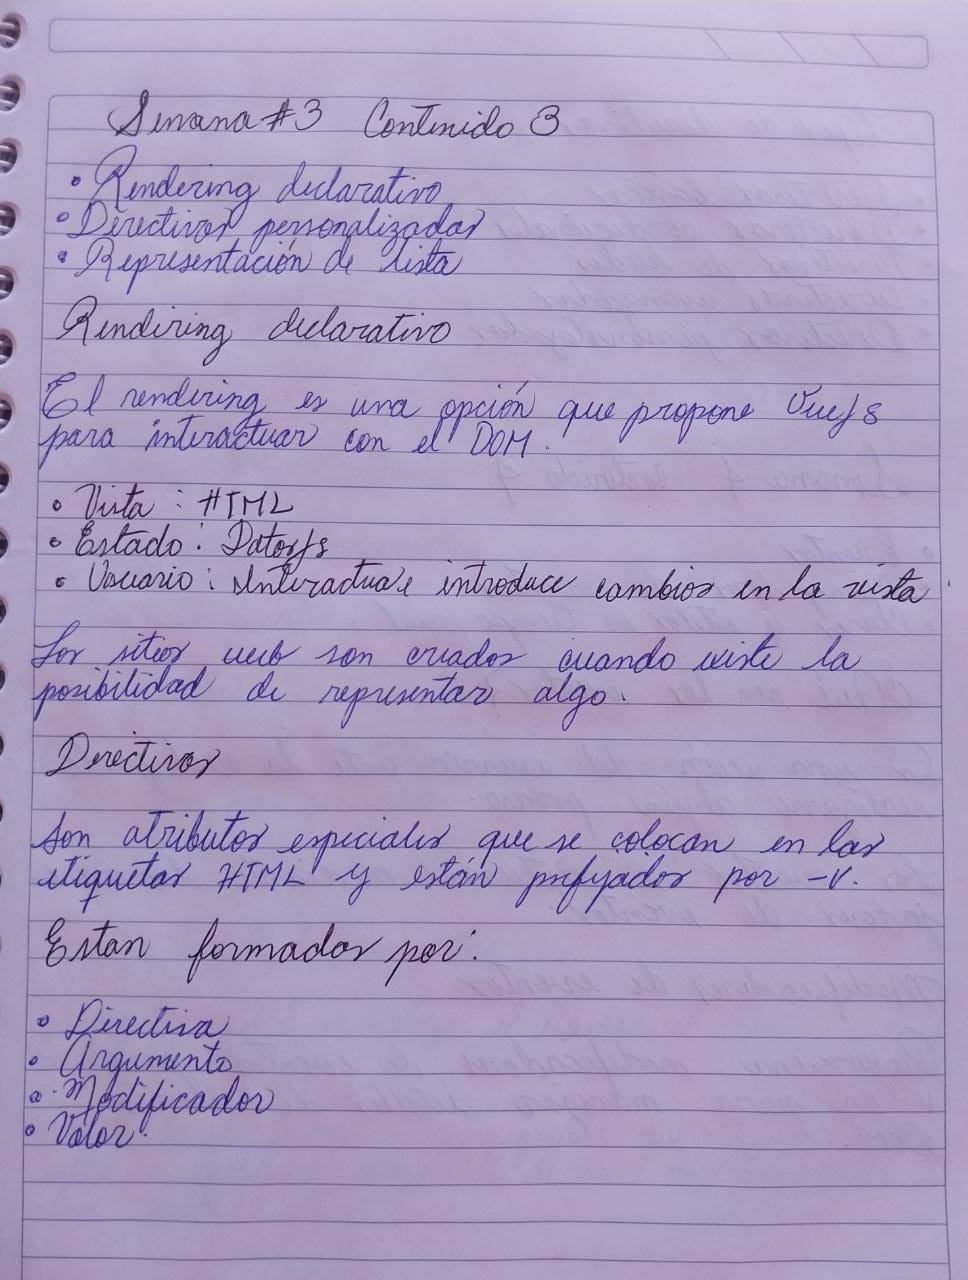 Semana #3 Contenido 3
• Rendering declarativo
• Directivas personalizadas
• Representación de lista
Rendiring declarativo
El rendering es una opción que propone VueJs
para interactuar con el DOM.
• Vista : HTML
• Estado : DatosJs
• Usuario : Interactua e introduce cambios en la vista
Los sitios web son creados cuando existe la
posibilidad de representar algo.
Directivas
Son atributos especiales que se colocan en las
etiquetas HTML y están prefijados por -v.
Estan formadas por:
• Directiva
• Argumento
• Modificador
• Valor.